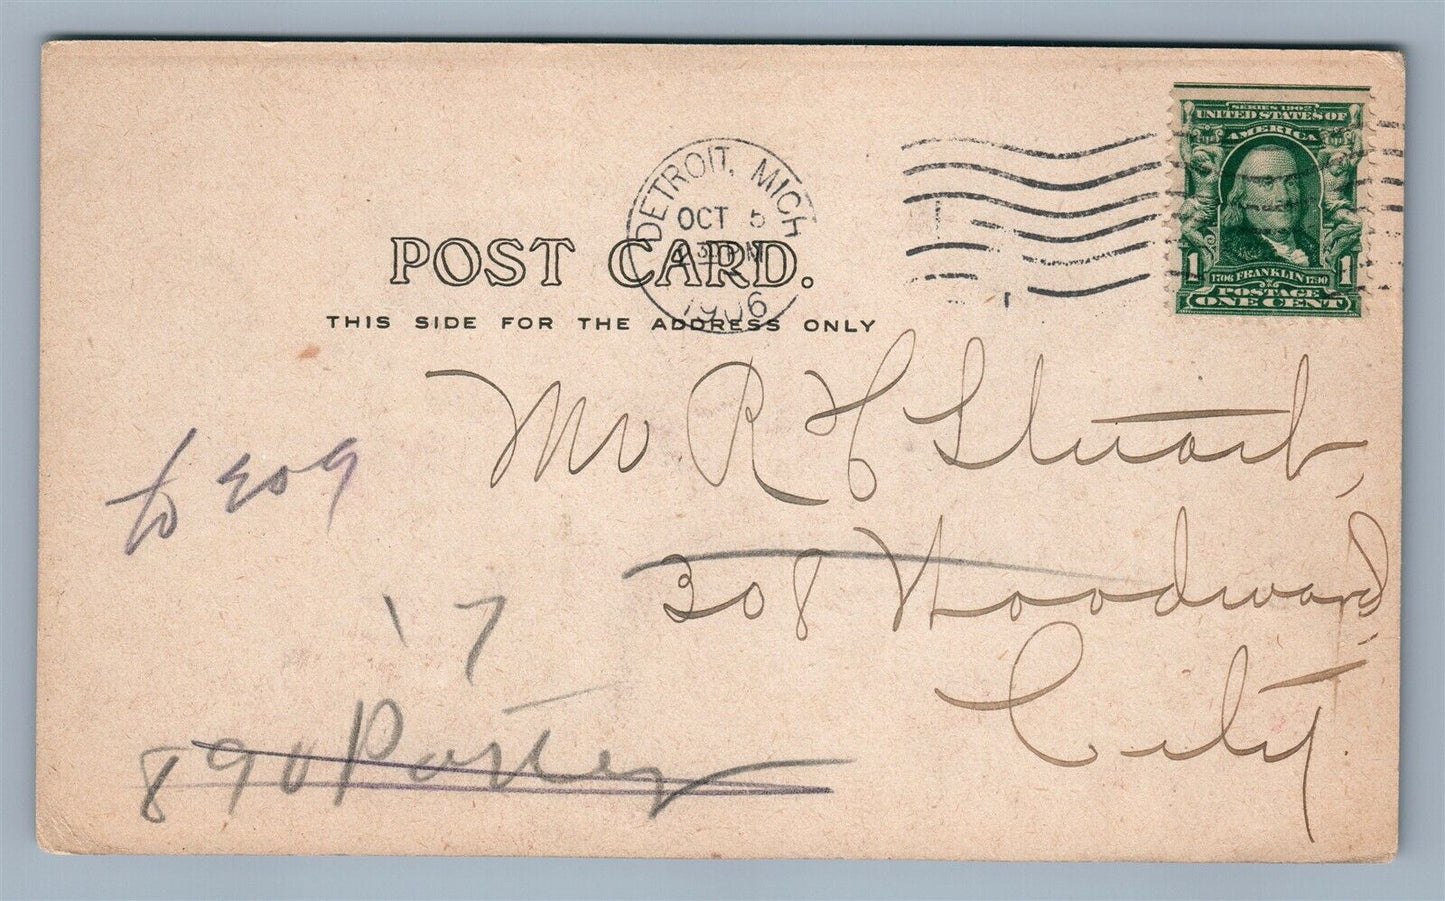 SERIES 1902
UNITED STATES OF
AMERICA
1 1
1706 FRANKLIN 1790
POSTAGE
ONE CENT
DETROIT, MICH
OCT 5
PM
1906
POST CARD.
THIS SIDE FOR THE ADDRESS ONLY
Mr R H Stuart,
308 Woodward,
City.
to 909
'17
890